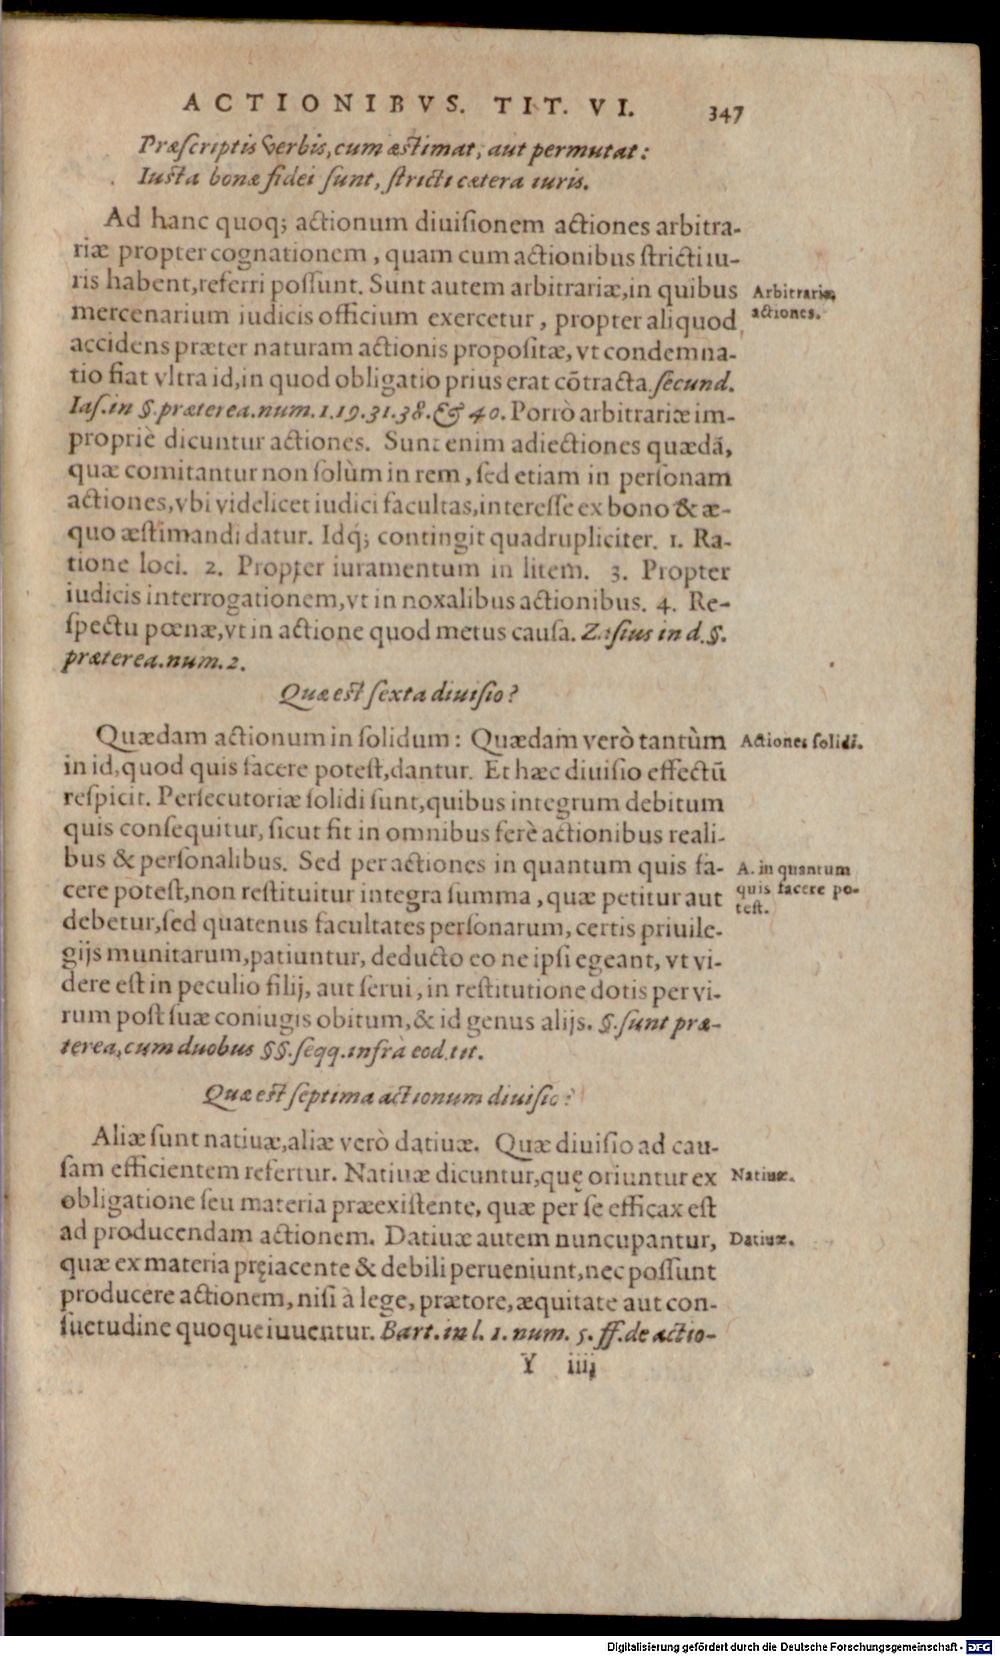 ACTIONIBVS. TIT. VI. 347
Præſcriptis verbis, cum æſtimat, aut permutat:
Iuſta bonæ fidei ſunt, ſtricti cætera iuris.
Ad hanc quoq; actionum diuiſionem actiones arbitra-
riæ propter cognationem, quam cum actionibus ſtricti iu-
ris habent, referri poſſunt. Sunt autem arbitrariæ, in quibus
Arbitrariæ
mercenarium iudicis officium exercetur, propter aliquod
actiones.
accidens præter naturam actionis propoſitæ, vt condemna-
tio fiat vltra id, in quod obligatio prius erat cōtracta. ſecund.
Iaſ. in §. præterea. num. 1. 19. 31. 38. & 40. Porrò arbitrariæ im-
propriè dicuntur actiones. Sunt enim adiectiones quædā,
quæ comitantur non ſolùm in rem, ſed etiam in perſonam
actiones, vbi videlicet iudici facultas, intereſſe ex bono & æ-
quo æſtimandi datur. Idq́; contingit quadrupliciter. 1. Ra-
tione loci. 2. Propter iuramentum in litem. 3. Propter
iudicis interrogationem, vt in noxalibus actionibus. 4. Re-
ſpectu pœnæ, vt in actione quod metus cauſa. Zaſius in d. §.
præterea. num. 2.
Quæ eſt ſexta diuiſio?
Quædam actionum in ſolidum: Quædam verò tantùm
Actiones ſolidi.
in id, quod quis facere poteſt, dantur. Et hæc diuiſio effectū
reſpicit. Perſecutoriæ ſolidi ſunt, quibus integrum debitum
quis conſequitur, ſicut fit in omnibus ferè actionibus reali-
bus & perſonalibus. Sed per actiones in quantum quis fa-
A. in quantum
cere poteſt, non reſtituitur integra ſumma, quæ petitur aut
quis facere po-
teſt.
debetur, ſed quatenus facultates perſonarum, certis priuile-
gijs munitarum, patiuntur, deducto eo ne ipſi egeant, vt vi-
dere eſt in peculio filij, aut ſerui, in reſtitutione dotis per vi-
rum poſt ſuæ coniugis obitum, & id genus alijs. §. ſunt præ-
terea, cum duobus §§. ſeqq. infrà eod. tit.
Quæ eſt ſeptima actionum diuiſio?
Aliæ ſunt natiuæ, aliæ verò datiuæ. Quæ diuiſio ad cau-
ſam efficientem refertur. Natiuæ dicuntur, quę oriuntur ex
Natiuæ.
obligatione ſeu materia præexiſtente, quæ per ſe efficax eſt
ad producendam actionem. Datiuæ autem nuncupantur,
Datiuæ.
quæ ex materia pręiacente & debili perueniunt, nec poſſunt
producere actionem, niſi à lege, prætore, æquitate aut con-
ſuetudine quoque iuuentur. Bart. in l. 1. num. 5. ff. de actio-
Y iiij
Digitalisierung gefördert durch die Deutsche Forschungsgemeinschaft - DFG